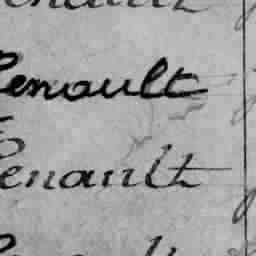 enault
Renault
Renault